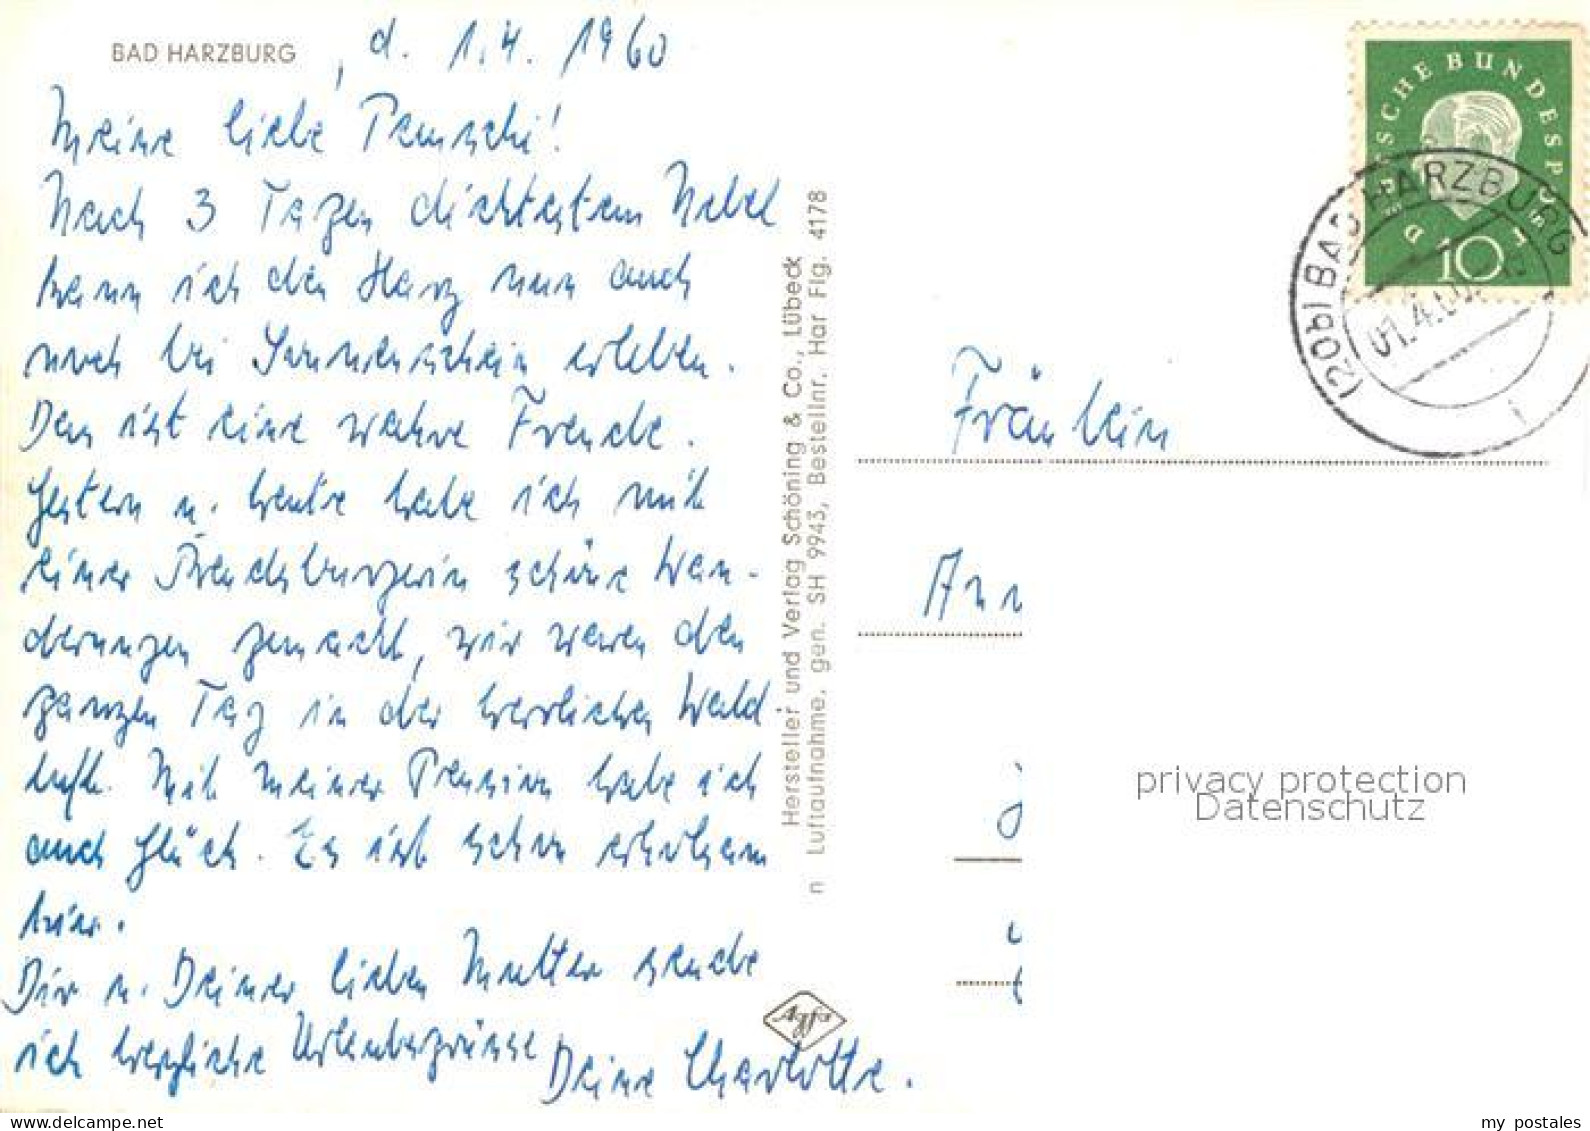 BAD HARZBURG , d. 1.4. 1960
Meine liebe Pauschi!
Nach 3 Tagen dichtestem Nebel
kann ich den Harz nun auch
noch bei Sonnenschein erleben.
Das ist eine wahre Freude.
Gestern u. heute habe ich mit
einer Rendsburgerin schöne Wan-
derungen gemacht, wir waren den
ganzen Tag in der herrlichen Wald
luft. Mit meiner Pension habe ich
auch Glück. Es ist schon erholsam
hier.
Dir u. Deiner lieben Mutter sende
ich herzliche Urlaubsgrüsse
Deine Charlotte.
Hersteller und Verlag Schöning & Co., Lübeck
n Luftaufnahme, gen. SH 9943, Bestellnr. Har Flg. 4178
Agfa
DEUTSCHE BUNDESPOST
10
(20b) BAD HARZBURG
01.4.60
Fräulein
Ann
privacy protection
Datenschutz
my postales